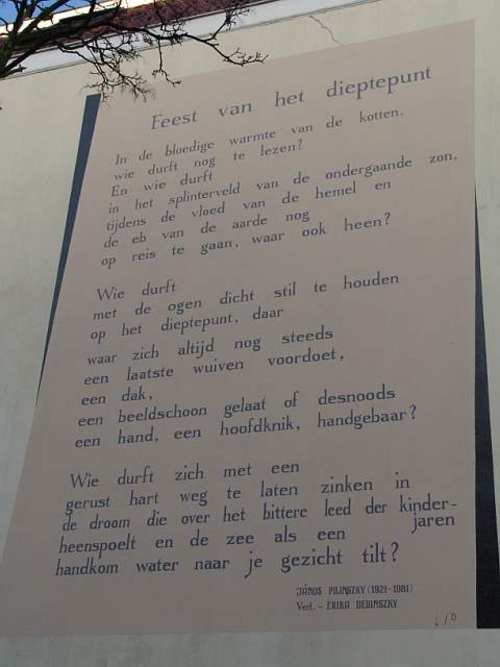 Feest van het dieptepunt
In de bloedige warmte van de kotten.
wie durft nog te lezen?
En wie durft
in het splinterveld van de ondergaande zon,
tijdens de vloed van de hemel en
de eb van de aarde nog
op reis te gaan, waar ook heen?
Wie durft
met de ogen dicht stil te houden
op het dieptepunt, daar
waar zich altijd nog steeds
een laatste wuiven voordoet,
een dak,
een beeldschoon gelaat of desnoods
een hand, een hoofdknik, handgebaar?
Wie durft zich met een
gerust hart weg te laten zinken in
de droom die over het bittere leed der kinder-
jaren
heenspoelt en de zee als een
handkom water naar je gezicht tilt?
JÁNOS PILINSZKY (1921-1981)
Vert. - ERIKA DEDINSZKY